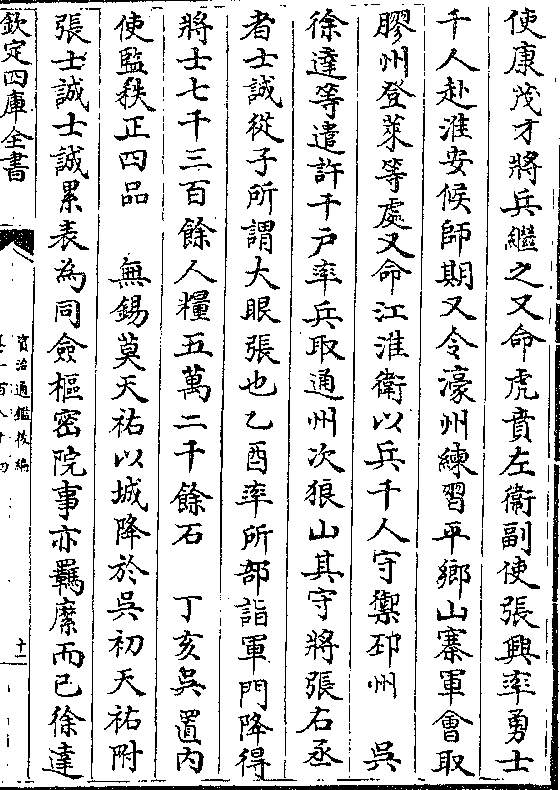 使康茂才將兵繼之又命虎賁左衞副使張興率勇士
千人赴淮安候師期又令濠州練習平鄉山寨軍會取
膠州登萊等處又命江淮衛以兵千人守禦邳州　吳
徐達等遣許千戶率兵取通州次狼山其守將張右丞
者士誠從子所謂大眼張也乙酉率所部詣軍門降得
將士七千三百餘人糧五萬二千餘石　丁亥吳置内
使監秩正四品　無錫莫天祐以城降於吳初天祐附
張士誠士誠累表為同僉樞密院事亦羈縻而已徐達
欽定四庫全書
資治通鑑後編
卷一百八十四
十一